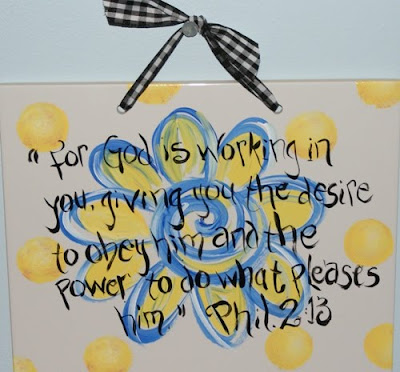 "for God is working in
you, giving you the desire
to obey him and the
power to do what pleases
him" Phil. 2:13